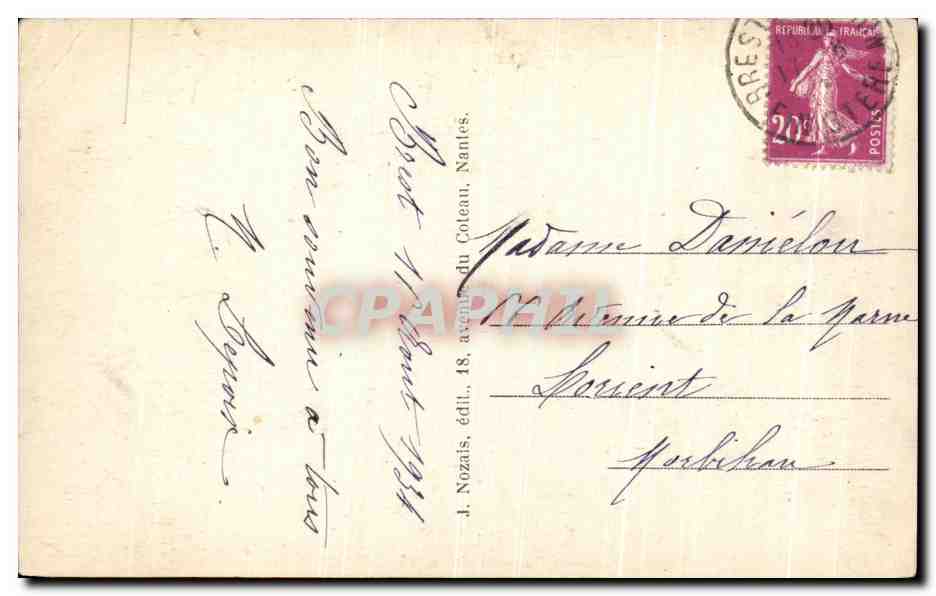 Brest 11 Août 1934
Bon souvenir à tous
Lepoix
J. Nozais, édit., 18, avenue du Coteau, Nantes.
BREST
FINISTERE
REPUBLIQUE FRANÇAISE
20c
POSTES
Madame Daniélou
Avenue de la Marne
Lorient
Morbihan
CPAPHIL